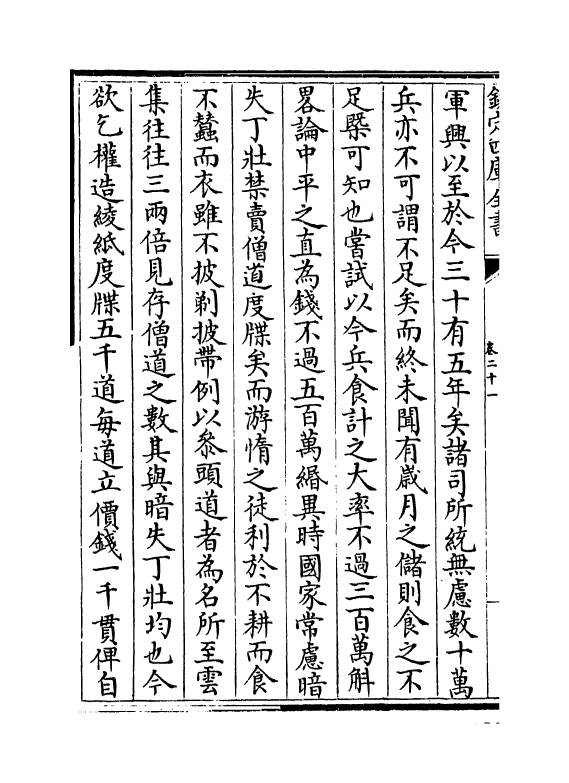 欽定四庫全書
卷二十一
軍興以至於今三十有五年矣諸司所統無慮數十萬
兵亦不可謂不足矣而終未聞有嵗月之儲則食之不
足槩可知也嘗試以今兵食計之大率不過三百萬斛
畧論中平之直為錢不過五百萬緡異時國家常慮暗
失丁壯禁賣僧道度牒矣而游惰之徒利於不耕而食
不蠶而衣雖不披剃披帶例以叅頭道者為名所至雲
集往往三兩倍見存僧道之數其與暗失丁壯均也今
欲乞權造綾紙度牒五千道每道立價錢一千貫俾自